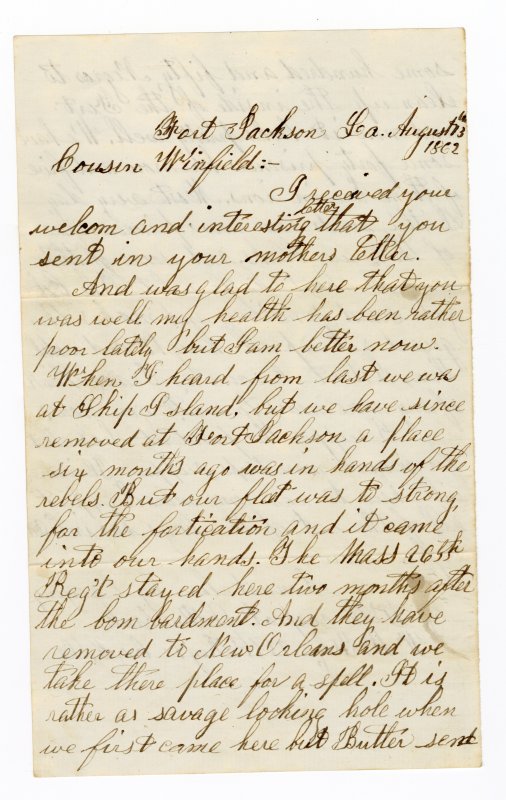 Fort Jackson La. August 13th
1862
Cousin Winfield:-
I received your
welcom and interesting letter that you
sent in your mothers letter.
And was glad to here that you
was well my health has been rather
poor lately but I am better now.
When I heard from last we was
at Ship Island, but we have since
removed at Fort Jackson a place
six months ago was in hands of the
rebels. But our flat was to strong
for the fortication and it came
into our hands. The Mass 26th
Reg't stayed here two months after
the bom bardment. And they have
removed to New Orleans and we
take there place for a spell. It is
rather as savage looking hole when
we first came here but Butter sent